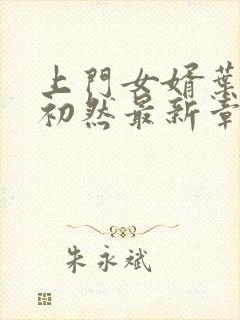 上門女婿葉
初然最新章
朱永斌